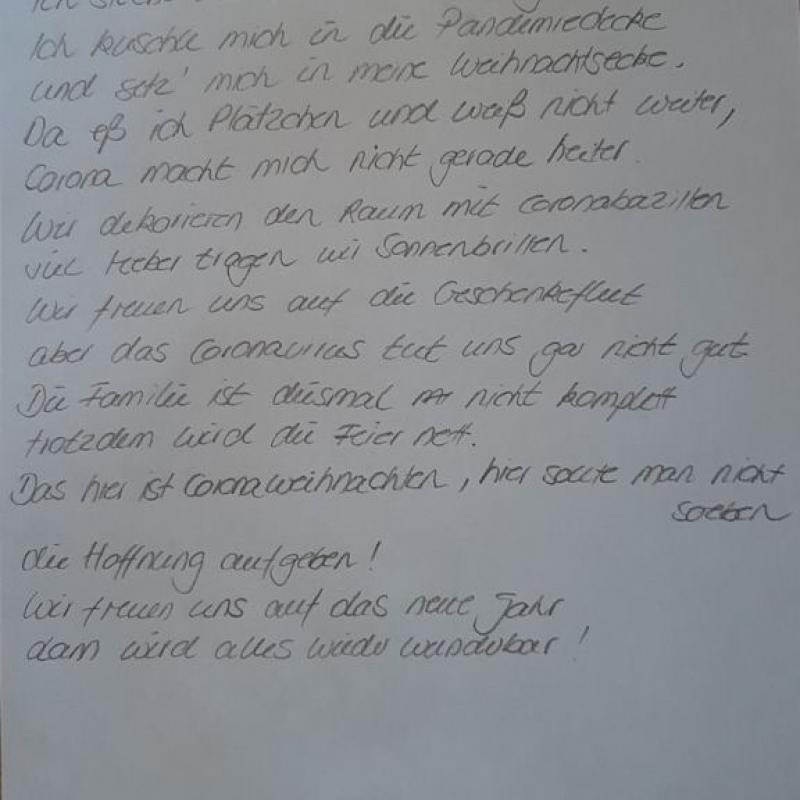 Ich
Ich kuschle mich in die Pandemiedecke
und setz' mich in meine Weihnachtsecke.
Da eß ich Plätzchen und weiß nicht weiter,
Corona macht mich nicht gerade heiter.
Wir dekorieren den Raum mit Coronabazillen
viel lieber tragen wir Sonnenbrillen.
Wir freuen uns auf die Geschenkeflut
aber das Coronavirus tut uns gar nicht gut.
Die Familie ist diesmal nicht komplett
trotzdem wird die Feier nett.
Das hier ist Coronaweihnachten, hier sollte man nicht
soeben
die Hoffnung aufgeben!
Wir freuen uns auf das neue Jahr
dann wird alles wieder wunderbar!